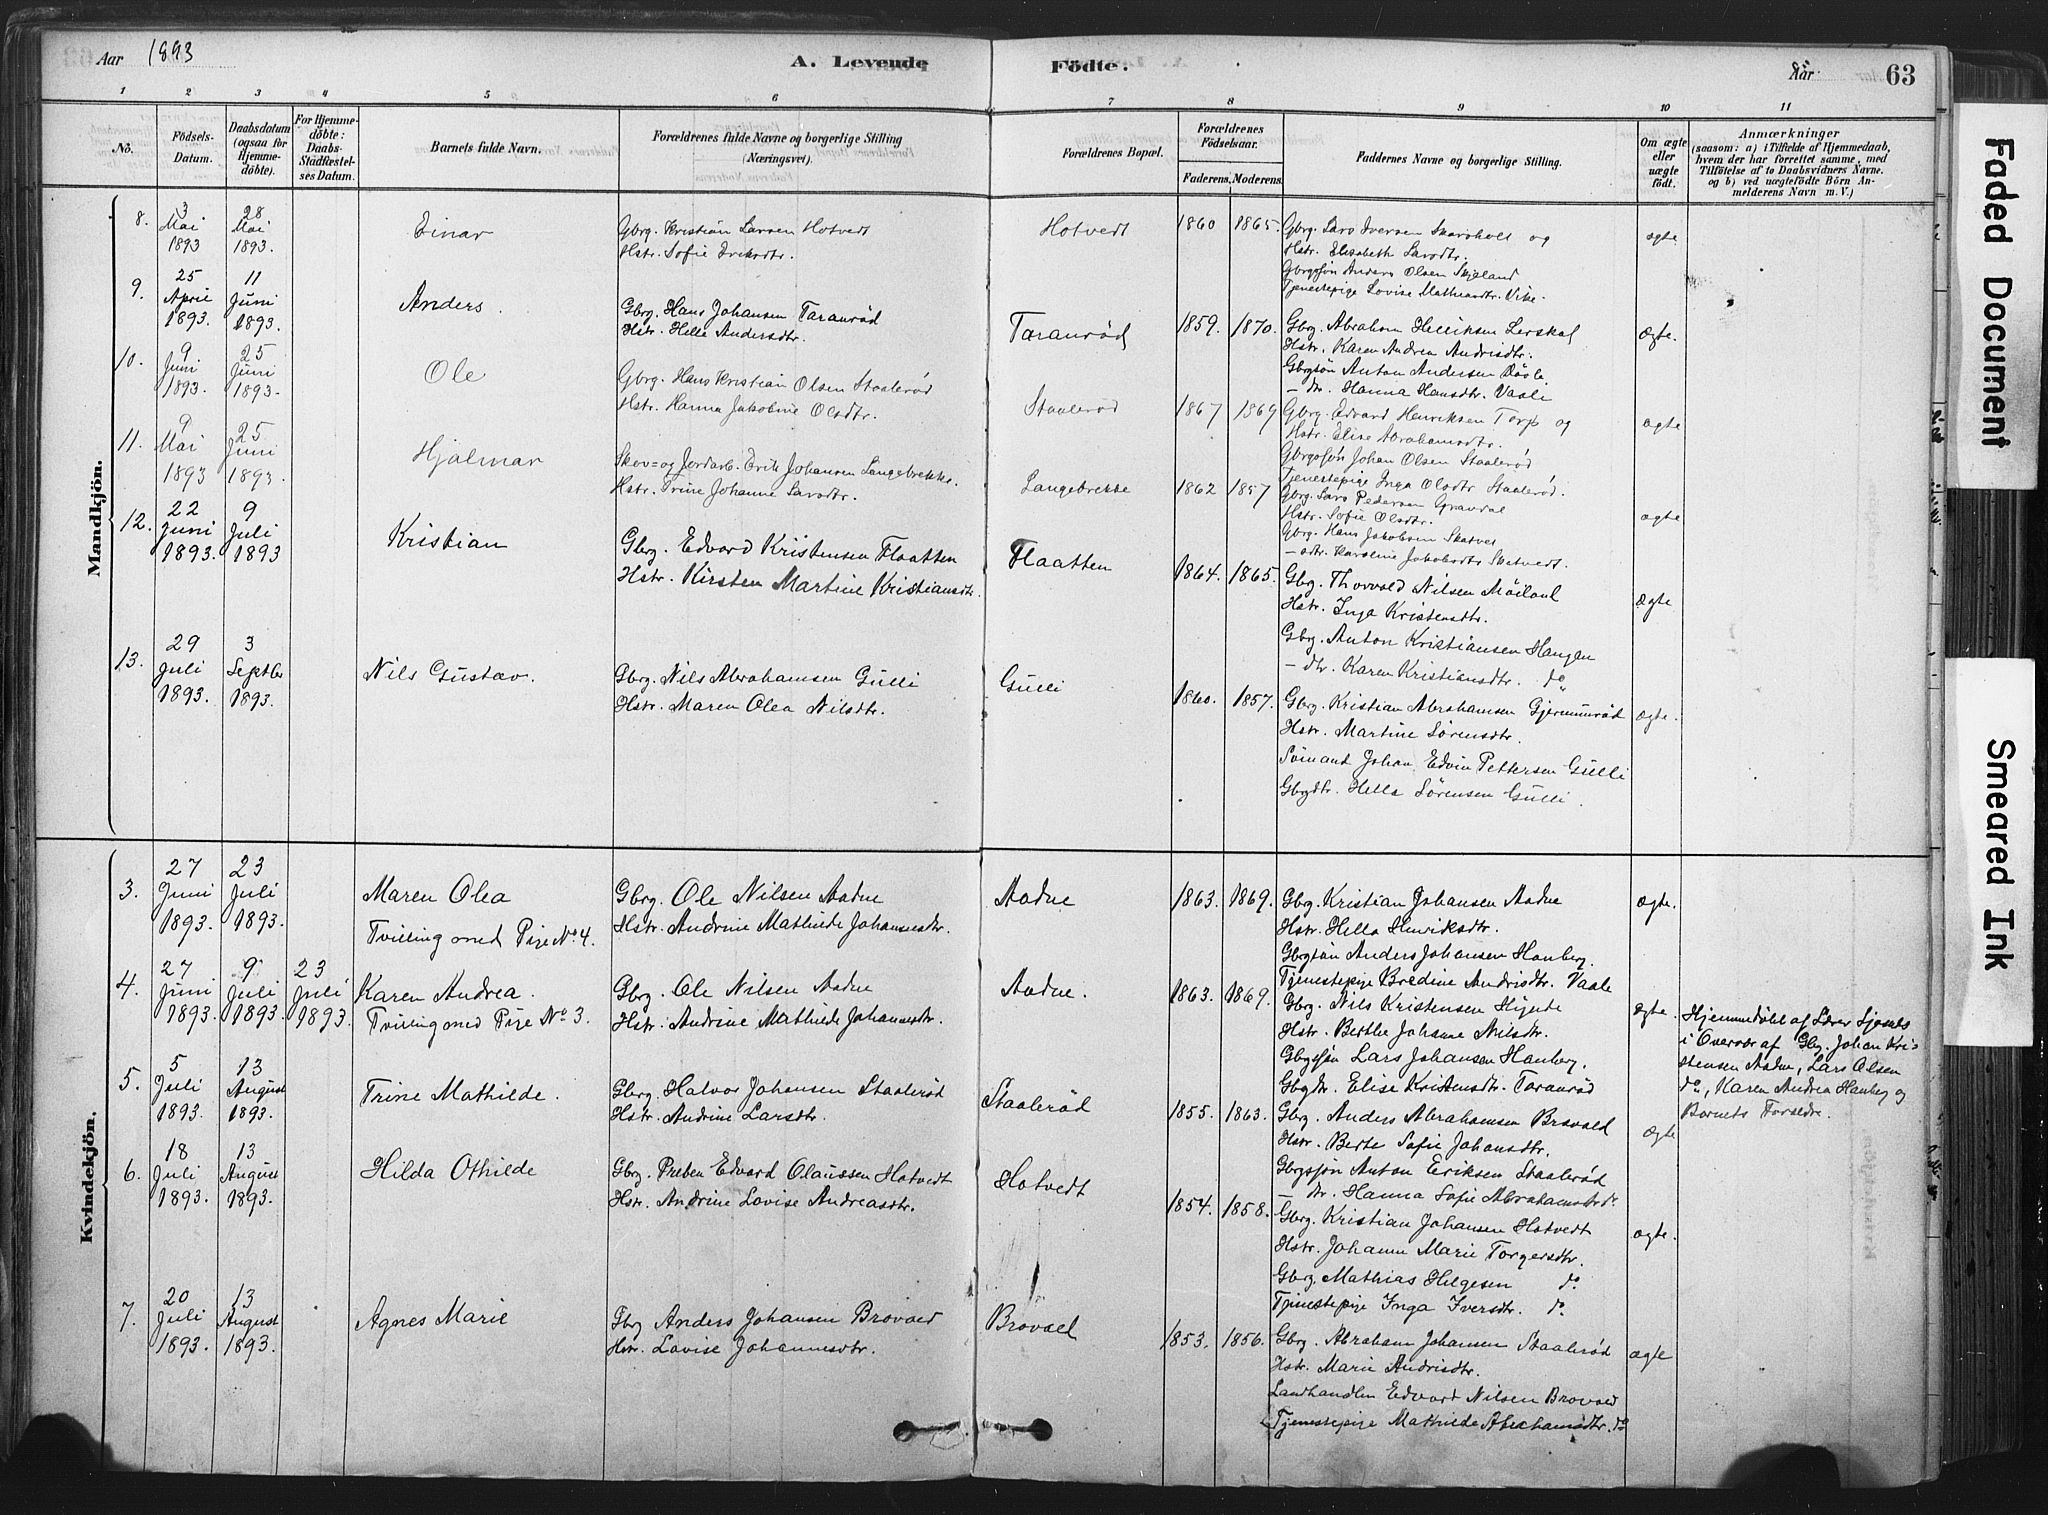 Aar 1893
A. Levende
Födte.
Aar
63
1 2 3 4 5 6 7 8 9 10 11
No.
Födsels-
Datum.
Daabsdatum
(ogsaa for
Hjemme-
döbte).
For Hjemme-
döbte:
Daabs-
Stadfæstel-
ses Datum.
Barnets fulde Navn.
Forældrenes fulde Navne og borgerlige Stilling
(Næringsvei).
Forældrenes Bopæl.
Forældrenes
Födselsaar.
Faderens. Moderens.
Faddernes Navne og borgerlige Stilling.
Om ægte
eller
uægte
födt.
Anmærkninger
(saasom: a) i Tilfælde af Hjemmedaab,
hvem der har forrettet samme, med
Tilföielse af to Daabsvidners Navne.
og b) ved uægtefödte Börn An-
melderens Navn m. V.)
Mandkjön.
8.
3
Mai
1893
28
Mai
1893.
Einar
Gbrg. Kristian Larsen Hotvedt
Hstr. Sofie
Hotvedt
1860 1865.
Gbrg. Lars Iversen Skarsholt og
Hstr. Elisabeth Larsdtr.
Gbrgssön Anders Olsen Skjeland
Tjenestepige Lovise Mathiasdtr. Vike.
ægte
9.
25
April
1893.
11
Juni
1893.
Anders.
Gbrg. Hans Johansen Taranröd
Hstr. Helle Andersdtr.
Taranröd
1859. 1870.
Gbrg. Abraham Henriksen Lerskal
Hstr. Karen Andrea Andrisdtr.
Gbrgsön Anton Andersen
– dtr. Hanna Hansdtr. Vaali
Ægte.
10.
9
Juni
1893.
25
Juni
1893.
Ole
Gbrg. Hans Kristian Olsen Staaleröd
Hstr. Hanna Jakobine Olsdtr.
Staaleröd
1867 1869
Gbrg. Edvard Henriksen Torp og
Hstr. Elise Abrahamsdtr.
Gbrgssön Johan Olsen Staaleröd
Tjenestepige Inga Olsdtr Staaleröd.
ægte
11.
9
Mai
1893
25
Juni
1893.
Hjalmar
Skov= og Jordarb. Erik Johansen Langebrekke.
Hstr. Trine Johanne Larsdtr.
Langebrekke
1862 1857
Gbrg. Lars Pedersen Gravdal
Hstr. Sofie Olsdtr.
Gbrg. Hans Jakobsen
– dtr. Karoline Jakobsdtr
ægte
12.
22
Juni
1893.
9
Juli
1893
Kristian
Gbrg. Edvard Kristensen Flaatten
Hstr. Kirsten Martine Kristiansdtr.
Flaatten
1864. 1865.
Gbrg. Thorvald Nilsen Möiland
Hstr. Inga Kristensdtr.
Gbrg. Anton Kristiansen Haugen
– dtr. Karen Kristiansdtr. do
Ægte
13.
29
Juli
1893.
3
Septbr
1893.
Nils Gustav.
Gbrg. Nils Abrahamsen Gulli
Hstr. Maren Olea Nilsdtr.
Gulli
1860. 1857.
Gbrg. Kristian Abrahamsen Gjermunröd
Hstr. Martine Sörensdtr.
Sömand Johan Edvin Pettersen Gulli
Gbrgdtr. Hella Sörensen Gulli.
ægte.
Kvindekjön.
3.
27
Juni
1893.
23
Juli
1893.
Maren Olea
Tvilling med Pige No 4.
Gbrg. Ole Nilsen Aadne
Hstr. Andrine Mathilde Johannesdtr.
Aadne
1863. 1869.
Gbrg. Kristian Johansen Aadne
Hstr. Hella Henriksdtr.
Gbrgsön Anders Johansen Hauberg.
Tjenestepige Bredine Andrisdtr. Vaale
ægte.
4.
27
Juni
1893.
9
Juli
1893.
23
Juli
1893.
Karen Andrea.
Tvilling med Pige No 3.
Gbrg. Ole Nilsen Aadne
Hstr. Andrine Mathilde Johannesdtr.
Aadne.
1863. 1869.
Gbrg. Nils Kristensen
Hstr. Berthe Johanne Nilsdtr.
Gbrgssön Lars Johansen Hauberg.
Gbrgdtr. Elise Kristensdtr. Taranröd
ægte.
Hjemmedöbt af Lærer
i Overvær af Gbg. Johan Kri-
stensen Aadne, Lars Olsen
do, Karen Andrea Hauberg og
Barnets Forældre.
5.
5
Juli
1893.
13
August
1893.
Trine Mathilde.
Gbrg. Halvor Johansen Staaleröd
Hstr. Andrine Larsdtr.
Staaleröd
1855. 1863.
Gbrg. Anders Abrahamsen Bravald
Hstr. Berte Sofie Johansdtr.
Gbrgssjön Anton Eriksen Staaleröd
– dtr. Hanna Sofie Abrahamsdtr do
ægte
6.
18
Juli
1893.
13
August
1893.
Hilda Othilde
Gbrg. Preben Edvard Olaussen Hotvedt
Hstr. Andrine Lovise Andreasdtr.
Hotvedt
1854. 1858.
Gbrg. Kristian Johansen Hotvedt
Hstr. Johanne Marie Torgersdtr.
Gbrg. Mathias Helgesen do
Tjenestepige Inga Iversdtr. do
ægte.
7.
20
Juli
1893.
13
August
1893.
Agnes Marie
Gbrg Anders Johansen Brovald
Hstr. Lovise Johannesdtr.
Brovael
1853. 1856.
Gbrg. Abraham Johansen Staaleröd
Hstr. Marie Andrisdtr.
Landhandler Edvard Nilsen Brovald
Tjenestepige Mathilde Abrahamsdtr. do
ægte
Faded Document
Smeared Ink